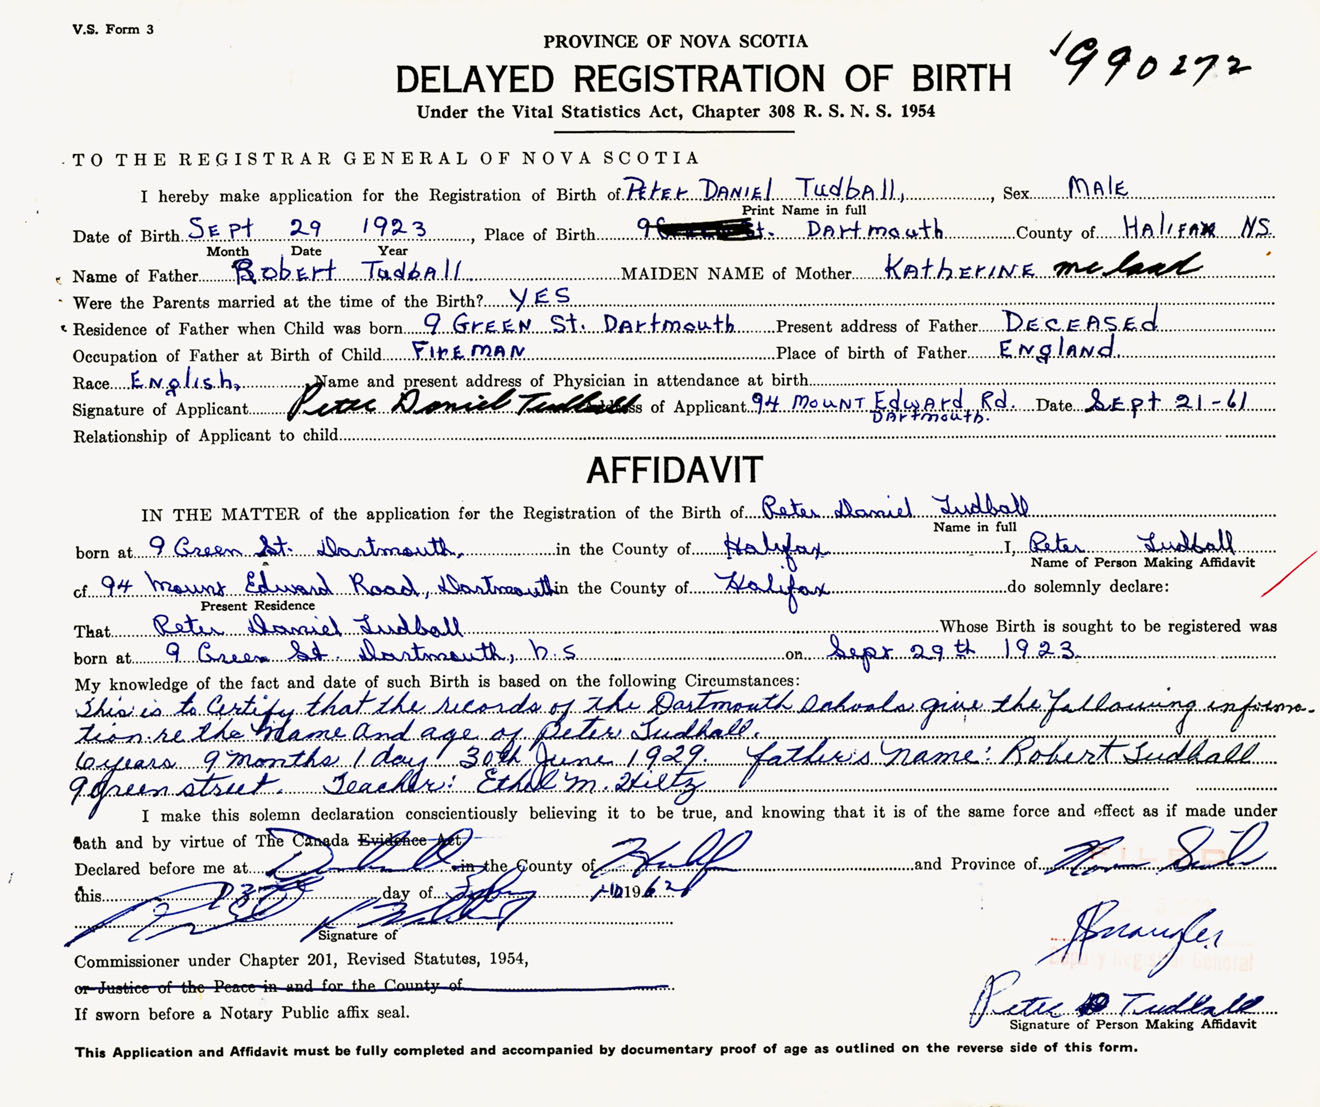 V.S. Form 3
PROVINCE OF NOVA SCOTIA
DELAYED REGISTRATION OF BIRTH
1990272
Under the Vital Statistics Act, Chapter 308 R. S. N. S. 1954
TO THE REGISTRAR GENERAL OF NOVA SCOTIA
I hereby make application for the Registration of Birth of PETER DANIEL Tudball, Sex MALE
Print Name in full
Date of Birth SEPt 29 1923, Place of Birth 9 St. DARtmouth County of HALIFAX NS.
Month Date Year
Name of Father ROBERT Tudball MAIDEN NAME of Mother KATHERINE
Were the Parents married at the time of the Birth? YES
Residence of Father when Child was born 9 GREEN St. DARtmouth Present address of Father DECEASEd
Occupation of Father at Birth of Child FIREMAN Place of birth of Father ENGLAND.
Race ENglish, Name and present address of Physician in attendance at birth
Signature of Applicant Peter Daniel Tudball of Applicant 94 MOUNT Edward Rd. Date SEpt 21-61
DARtmouth.
Relationship of Applicant to child
AFFIDAVIT
IN THE MATTER of the application for the Registration of the Birth of Peter Daniel Tudball
Name in full
born at 9 Green St. Dartmouth, in the County of Halifax I, Peter Tudball
Name of Person Making Affidavit
of 94 Mount Edward Road, Dartmouth in the County of Halifax do solemnly declare:
Present Residence
That Peter Daniel Tudball Whose Birth is sought to be registered was
born at 9 Green St. Dartmouth, n.s on Sept 29th 1923
My knowledge of the fact and date of such Birth is based on the following Circumstances:
This is to Certify that the records of the Dartmouth Schools give the following informa-
tion re the Name and age of Peter Tudball.
6 years 9 months 1 day 30th June 1929. father's name: Robert Tudball
9 green street. Teacher: Ethel M. Hiltz
I make this solemn declaration conscientiously believing it to be true, and knowing that it is of the same force and effect as if made under
oath and by virtue of The Canada Evidence Act
Declared before me at in the County of and Province of Nova Scotia
this day of 1962
Signature of
Commissioner under Chapter 201, Revised Statutes, 1954,
or Justice of the Peace in and for the County of
If sworn before a Notary Public affix seal.
Deputy Registrar General
Peter D Tudball
Signature of Person Making Affidavit
This Application and Affidavit must be fully completed and accompanied by documentary proof of age as outlined on the reverse side of this form.